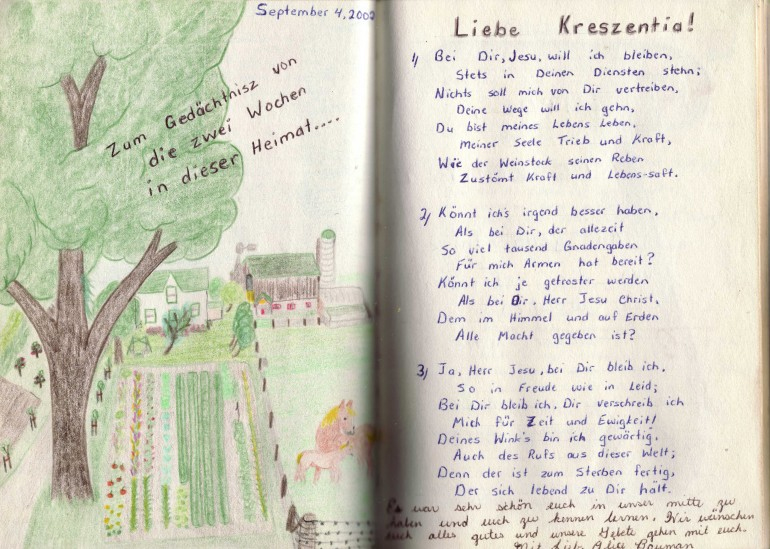 September 4, 2002
Zum Gedächtnisz von
die zwei Wochen
in dieser Heimat....
Liebe Kreszentia!
1) Bei Dir, Jesu, will ich bleiben,
Stets in Deinen Diensten stehn;
Nichts soll mich von Dir vertreiben,
Deine Wege will ich gehn,
Du bist meines Lebens Leben,
Meiner Seele Trieb und Kraft,
Wie der Weinstock seinen Reben
Zustömt Kraft und Lebens-saft.
2) Könnt ich's irgend besser haben,
Als bei Dir, der allezeit
So viel tausend Gnadengaben
Für mich Armen hat bereit?
Könnt ich je getroster werden
Als bei Dir, Herr Jesu Christ,
Dem im Himmel und auf Erden
Alle Macht gegeben ist?
3) Ja, Herr Jesu, bei Dir bleib ich,
So in Freude wie in Leid;
Bei Dir bleib ich, Dir verschreib ich
Mich für Zeit und Ewigkeit!
Deines Wink's bin ich gewärtig,
Auch des Rufs aus dieser Welt;
Denn der ist zum Sterben fertig,
Der sich lebend zu Dir hält.
Es war sehr schön euch in unser mitte zu
haben und euch zu kennen lernen. Wir wünschen
euch alles gutes und unsere Gebete gehen mit euch.
Mit Liebe